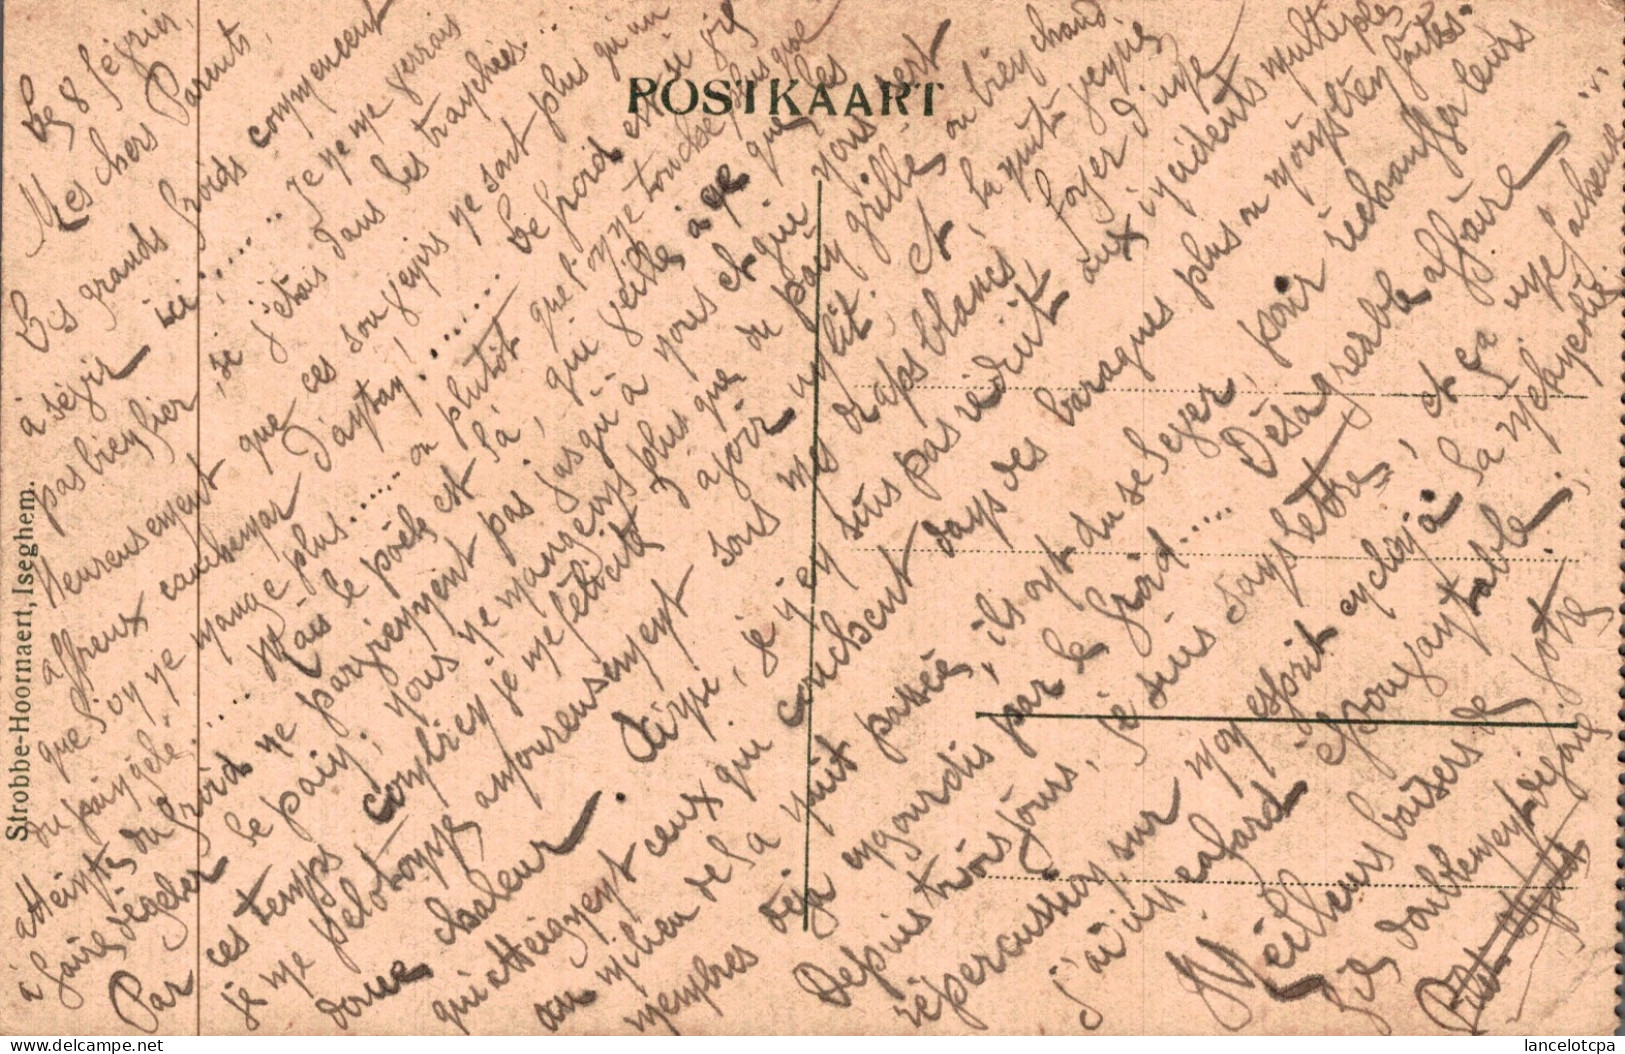 POSTKAART
Strobbe-Hoornaert, Iseghem.
Le 8 février,
Mes chers Parents,
Les grands froids commencent
à sévir ici ....... Je ne me verrais
pas bien fier, si j'étais dans les tranchées...
Heureusement que ces souvenirs ne sont plus qu'un
affreux cauchemar d'antan! ....... Le froid est si vif
que l'on ne mange plus ...... ou plutôt que l'on ne touche plus que
du pain gelé ....... Mais le poêle est là, qui veille à ce que les
atteintes du froid ne parviennent pas jusqu'à nous et qui nous sert
à faire dégeler le pain; nous ne mangeons plus que du pain grillé, ou bien chaud.
Par ces temps combien je me félicite d'avoir un lit, et, la nuit venue
je me pelotonne amoureusement sous mes draps blancs, foyer d'une
douce chaleur. Ainsi, je n'en suis pas réduit aux incidents multiples
qui atteignent ceux qui couchent dans des baraques plus ou moins bien faites.
au milieu de la nuit passée, ils ont du se lever, pour réchauffer leurs
membres déjà engourdis par le froid..... Désagreable affaire ...
Depuis trois jours, je suis sans lettre, et ça une fâcheuse
répercussion sur mon esprit enclin à la mélancolie.
J'ai un cafard épouvantable.
Meilleurs baisers de votre
fils doublement dégoné.